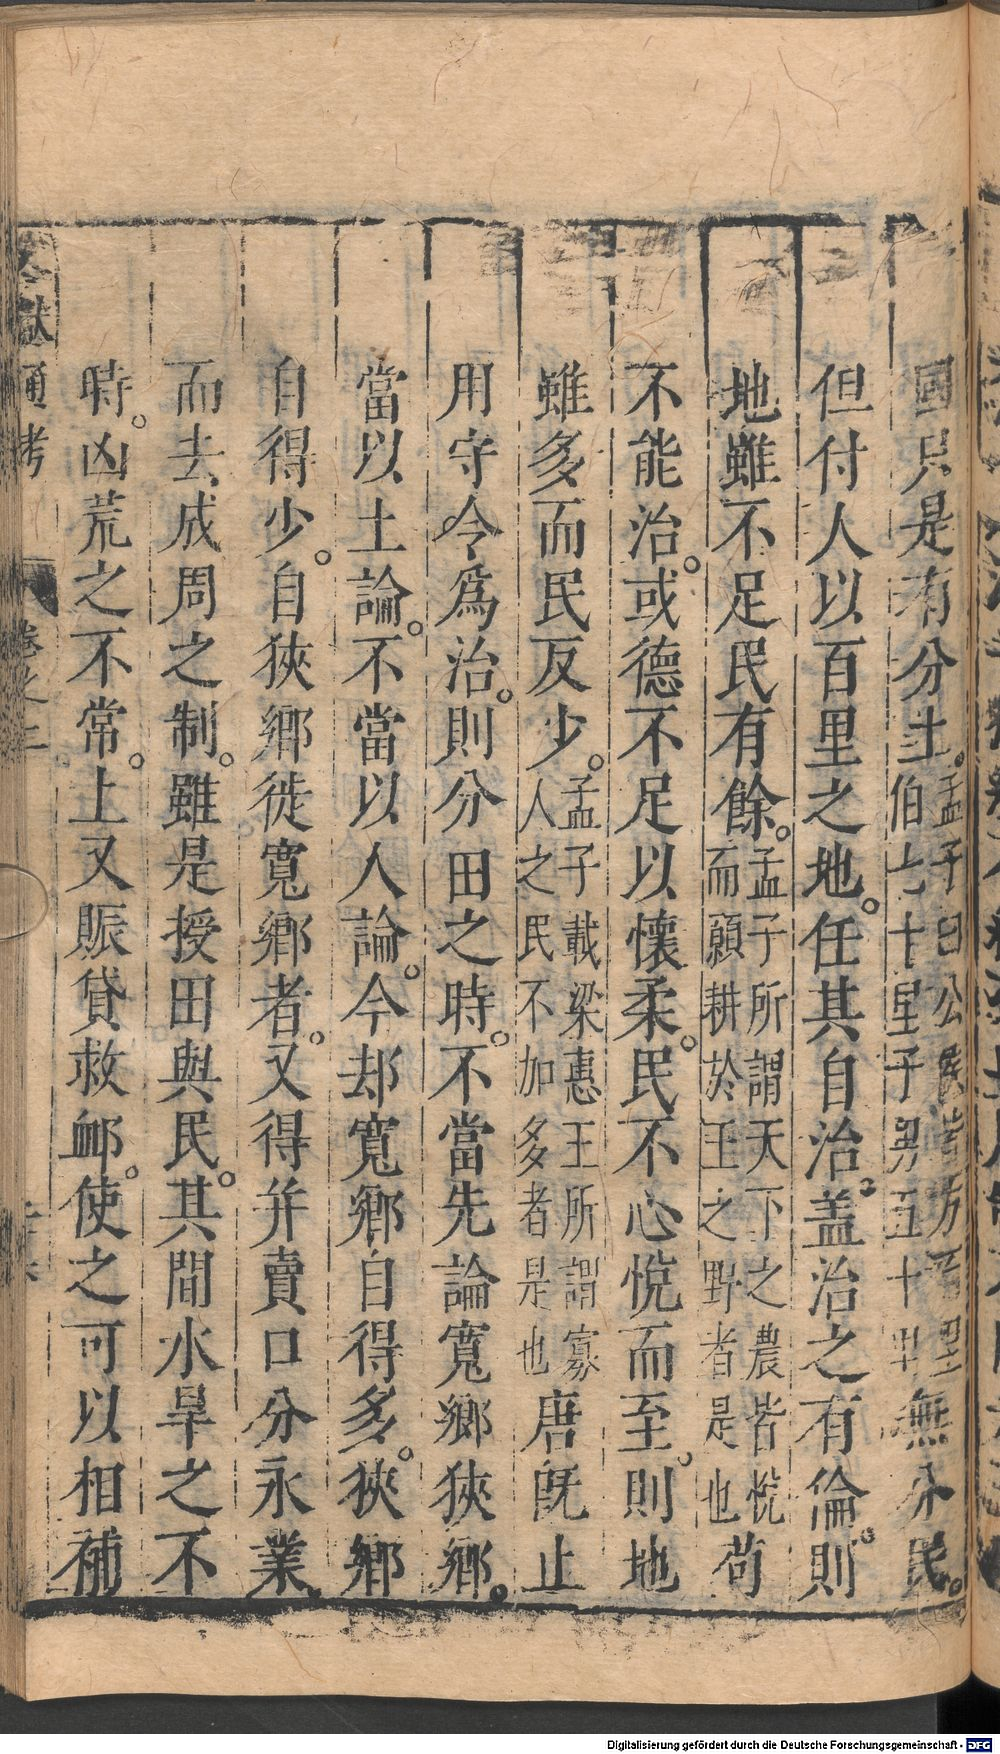 國只是有分土。孟子曰公侯皆方百里伯七十里子男五十里無分民。
但付人以百里之地。任其自治。盖治之有倫。則
地雖不足民有餘。孟子所謂天下之農皆悅而願耕於王之野者是也苟
不能治。或德不足以懷柔。民不心悅而至。則地
雖多而民反少。孟子載梁惠王所謂寡人之民不加多者是也唐旣止
用守令爲治。則分田之時。不當先論寬鄉狹鄉。
當以土論。不當以人論。今却寬鄉自得多。狹鄉
自得少。自狹鄉徙寬鄉者。又得并賣口分永業。
而去成周之制。雖是授田與民。其間水旱之不
時。凶荒之不常。上又賑貸救衈。使之可以相補
文獻通考 卷之二
Digitalisierung gefördert durch die Deutsche Forschungsgemeinschaft - DFG